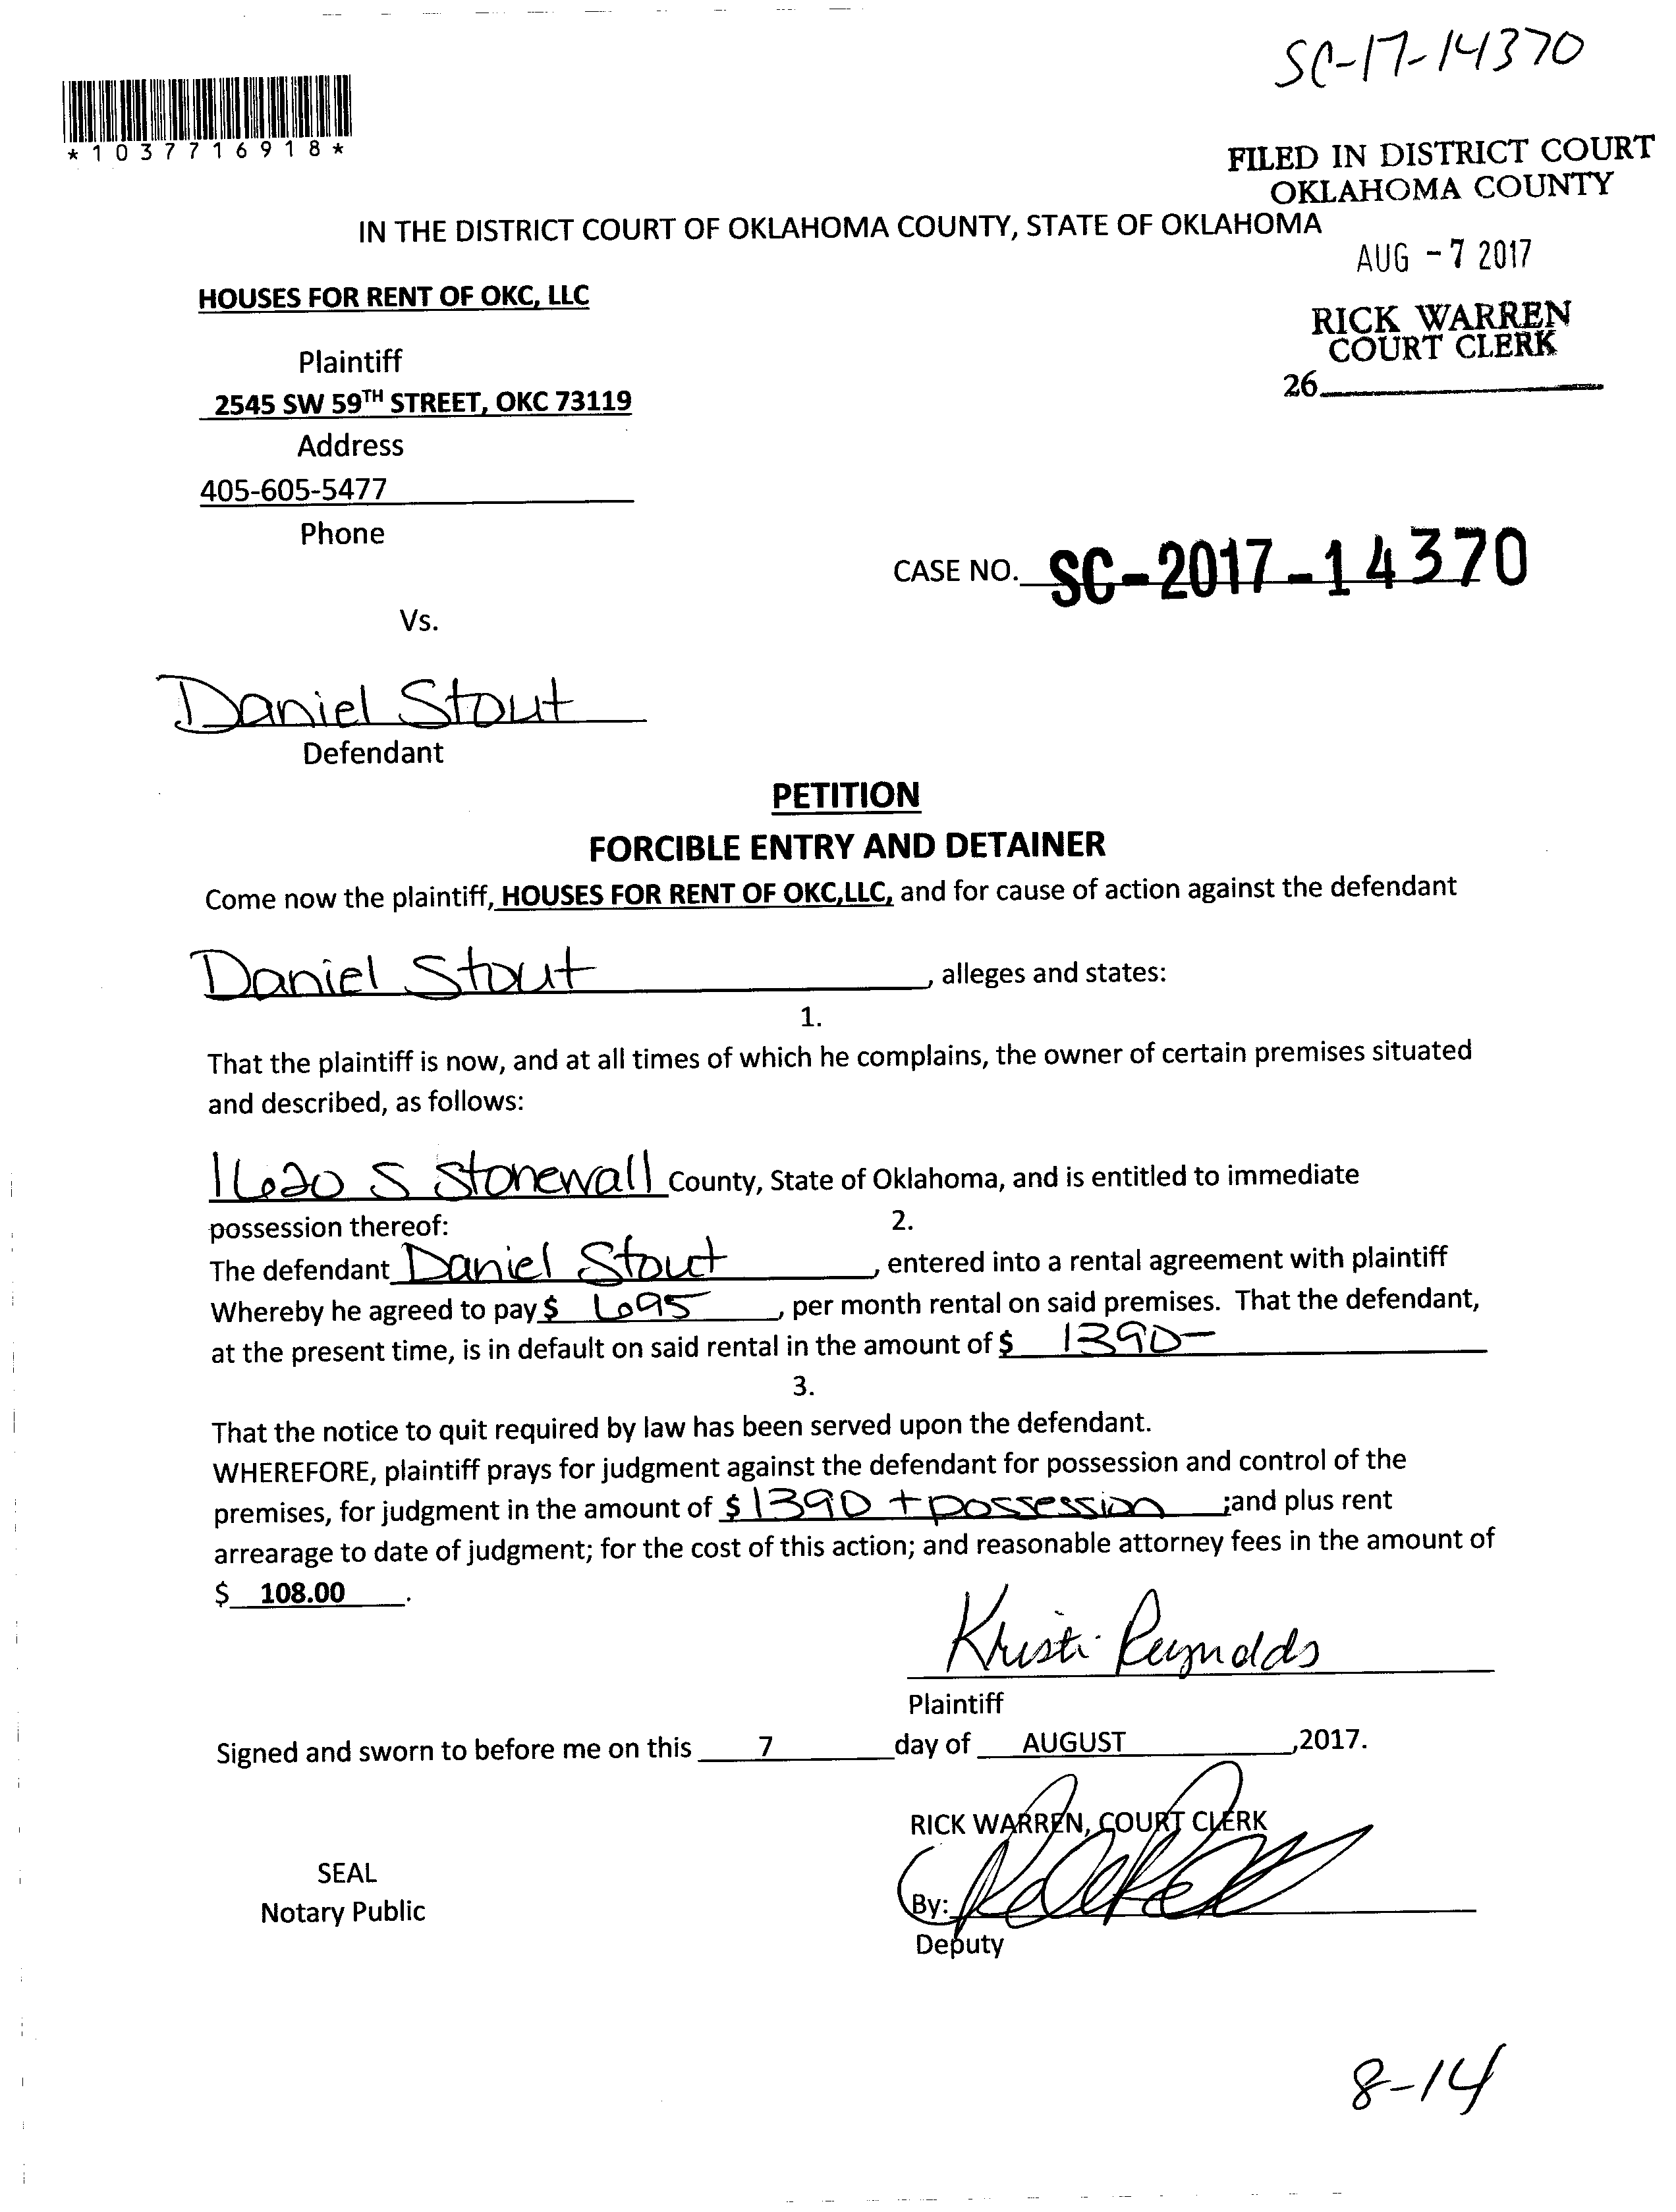 SC-17-14370
*1037716918*
FILED IN DISTRICT COURT
OKLAHOMA COUNTY
IN THE DISTRICT COURT OF OKLAHOMA COUNTY, STATE OF OKLAHOMA
AUG -7 2017
HOUSES FOR RENT OF OKC, LLC
RICK WARREN
COURT CLERK
Plaintiff
26
2545 SW 59TH STREET, OKC 73119
Address
405-605-5477
Phone
CASE NO. SC-2017-14370
Vs.
Daniel Stout
Defendant
PETITION
FORCIBLE ENTRY AND DETAINER
Come now the plaintiff, HOUSES FOR RENT OF OKC,LLC, and for cause of action against the defendant
Daniel Stout, alleges and states:
1.
That the plaintiff is now, and at all times of which he complains, the owner of certain premises situated
and described, as follows:
1620 S Stonewall County, State of Oklahoma, and is entitled to immediate
possession thereof:
2.
The defendant Daniel Stout, entered into a rental agreement with plaintiff
Whereby he agreed to pay $ 695, per month rental on said premises. That the defendant,
at the present time, is in default on said rental in the amount of $ 1390-
3.
That the notice to quit required by law has been served upon the defendant.
WHEREFORE, plaintiff prays for judgment against the defendant for possession and control of the
premises, for judgment in the amount of $ 1390 + possession ;and plus rent
arrearage to date of judgment; for the cost of this action; and reasonable attorney fees in the amount of
$ 108.00.
Kristi Reynolds
Plaintiff
Signed and sworn to before me on this 7 day of AUGUST ,2017.
RICK WARREN, COURT CLERK
SEAL
Notary Public
By:
Deputy
8-14